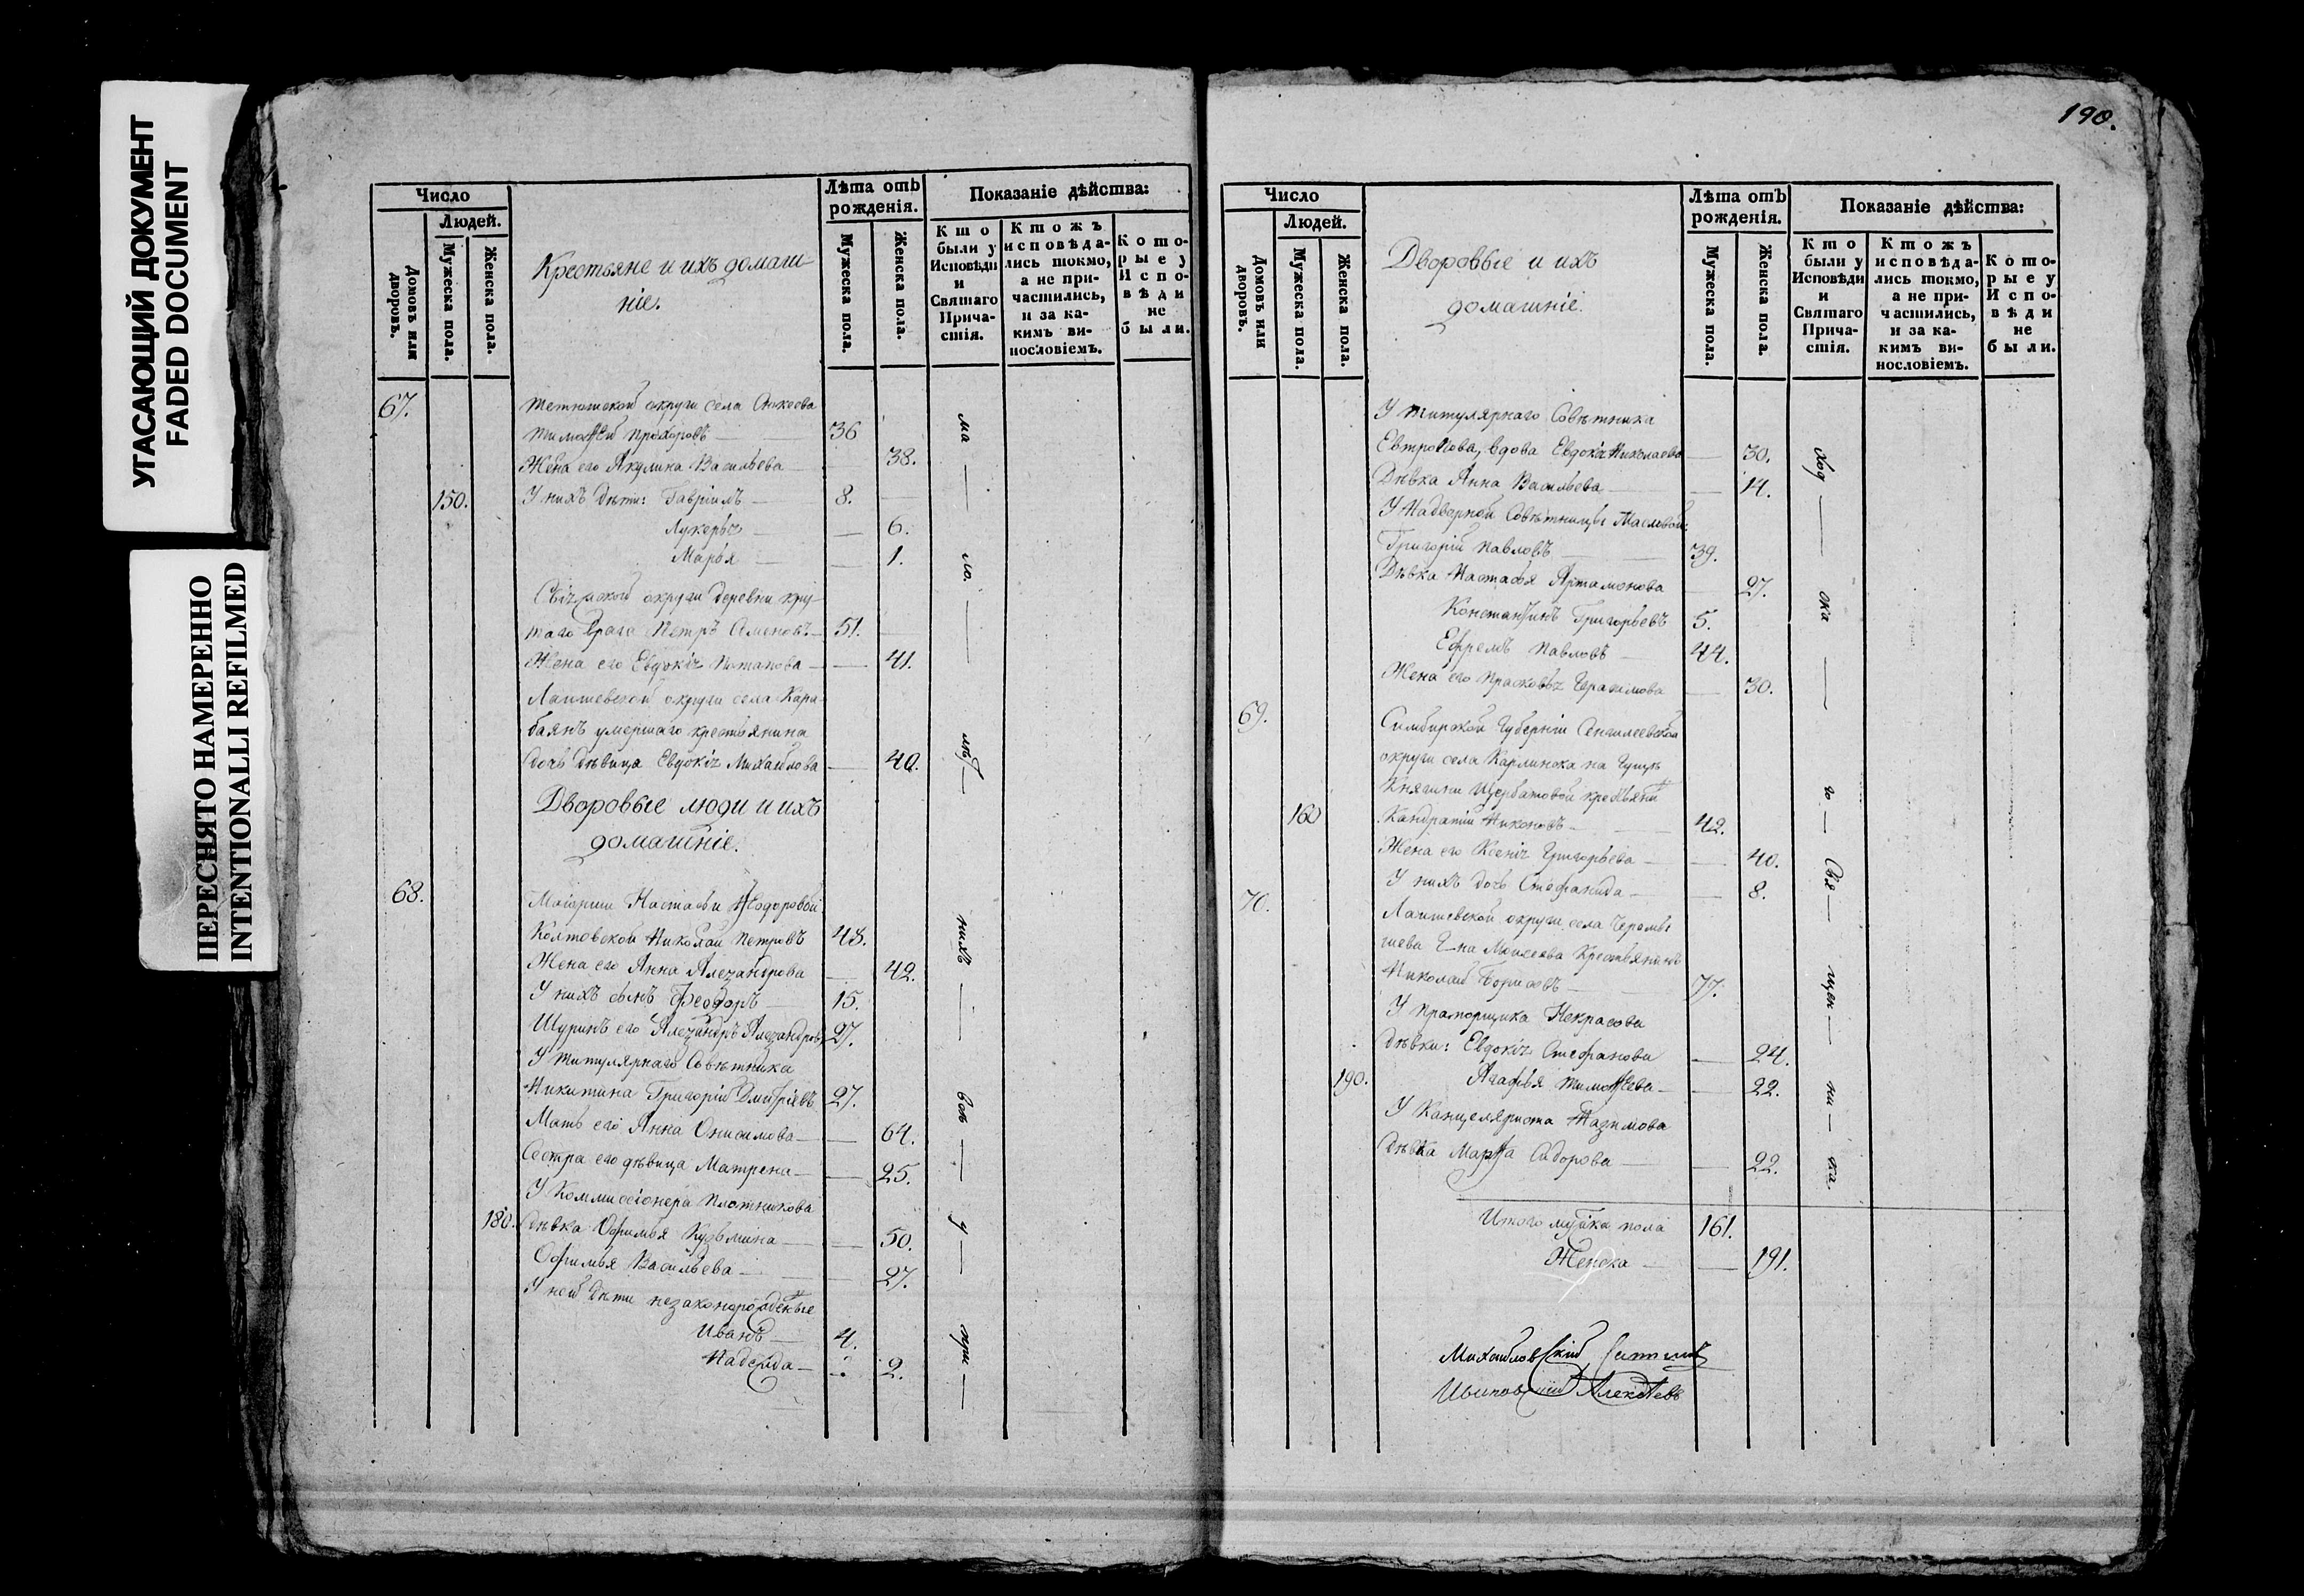 УГАСАЮЩИЙ ДОКУМЕНТ
FADED DOCUMENT
ПЕРЕСНЯТО НАМЕРЕННО
INTENTIONALLI REFILMED
Число
Людей.
Домовъ или дворовъ.
Мужеска пола.
Женска пола.
Крестьяне и ихъ домаш
ніе.
Лѣта отъ
рожденія.
Мужеска пола.
Женска пола.
Показаніе дѣйства:
Кто
были у
Исповѣди
и
Святаго
Прича-
стія.
Ктожъ
исповѣда-
лись токмо,
а не при-
частились,
и за ка-
кимъ ви-
нословіемъ.
Кото-
рые у
Испо-
вѣди
не
были.
67. Тетюшской округи села
Тимоѳей Прохоровъ 36
Жена его Акулина Васильева 38.
150. У нихъ дѣти: Гавріилъ 8.
Лукерья 6.
Марья 1.
округи деревни кру
таго Врага Петръ Семеновъ 51.
Жена его Евдокія Потапова 41.
Лаишевской округи села Кара
баянъ умершаго крестьянина
дочь дѣвица Евдокія Михайлова 40.
Дворовые люди и ихъ
домашніе.
68. Маіорши Настасьи Ѳеодоровой
Колтовской Николай Петровъ 48.
Жена его Анна Алезандрова 42.
У нихъ сынъ Ѳеодоръ 15.
Шуринъ его Алезандръ Алезандровъ 27.
У Титулярнаго Совѣтника
Никитина Григорій Дмитріевъ 27.
Мать его Анна Онисимова 64.
Сестра его дѣвица Матрена 25.
У Коммисіонера Плотникова
180. дѣвка Офимья Кузьмина 50.
Офимья Васильева 27.
У ней дѣти незаконорожденные
Иванъ 4.
Надежда 2.
190.
Число
Людей.
Домовъ или дворовъ.
Мужеска пола.
Женска пола.
Дворовые и ихъ
домашніе.
Лѣта отъ
рожденія.
Мужеска пола.
Женска пола.
Показаніе дѣйства:
Кто
были у
Исповѣди
и
Святаго
Прича-
стія.
Ктожъ
исповѣда-
лись токмо,
а не при-
частились,
и за ка-
кимъ ви-
нословіемъ.
Кото-
рые у
Испо-
вѣди
не
были.
У Титулярнаго Совѣтника
Евтропова, вдова Евдокія Николаева 30.
Дѣвка Анна Васильева 14.
У Надворной Совѣтницы Масловой:
Григорій Павловъ 39.
Дѣвка Настасья Артамонова 27.
Константинъ Григорьевъ 5.
Ефремъ Павловъ 44.
Жена его Прасковья Герасимова 30.
69. Симбирской Губерніи Сенгилеевской
округи села Карлинска на Гущѣ
Княгини Щербатовой крестьяни
160 Кандратій Никоновъ 42.
Жена его Ксенія Григорьева 40.
У нихъ дочь Стефанида 8.
70. Лаишевской округи села Черемы
шева Г-на Моисеева Крестьянинъ
Николай Борисовъ 77.
У Прапорщика Некрасова
дѣвки: Евдокія Стефанова 24.
190. Агафья Тимоѳеева 22.
У Канцеляриста Назимова
дѣвка Марѳа Сидорова 22.
Итого мужска пола 161.
Женска 191.
Михайловскій
Алексѣевъ